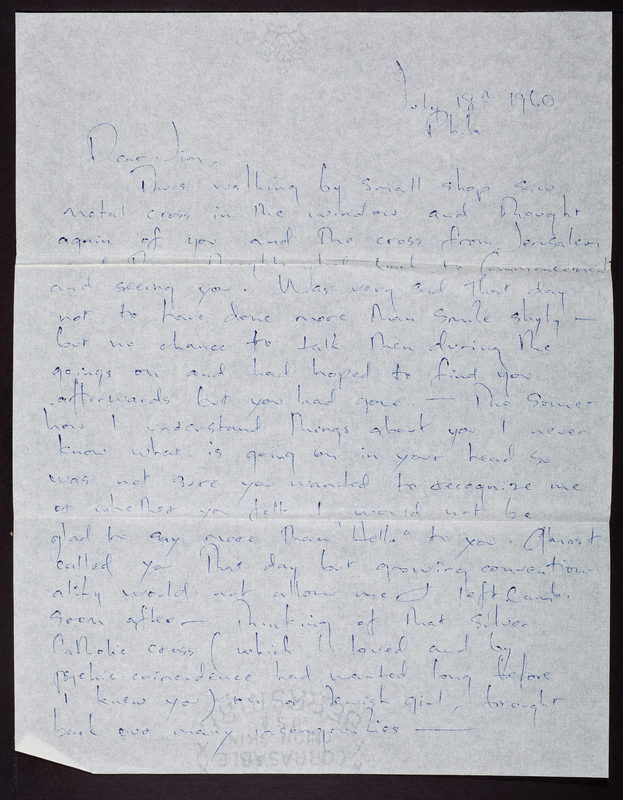 July 18th 1960
Phila
Dear Jim,
Was walking by small shop saw
metal cross in the window and thought
again of you and the cross from Jerusalem
back to Commencement
and seeing you. Was very sad that day
not to have done more than smile shyly —
but no chance to talk then during the
goings on and had hoped to find you
afterwards but you had gone — Tho some-
how I understand things about you I never
know what is going on in your head so
was not sure you wanted to recognize me
or whether you felt I would not be
glad to say more than "Hello" to you. Almost
called you that day but growing convention-
ality would not allow me & I left Camb.
soon after — Thinking of that silver
Catholic cross (which I loved and by
psychic coincidence had wanted long before
I knew you) a Jewish girl, brought
back our many
CORRASABLE